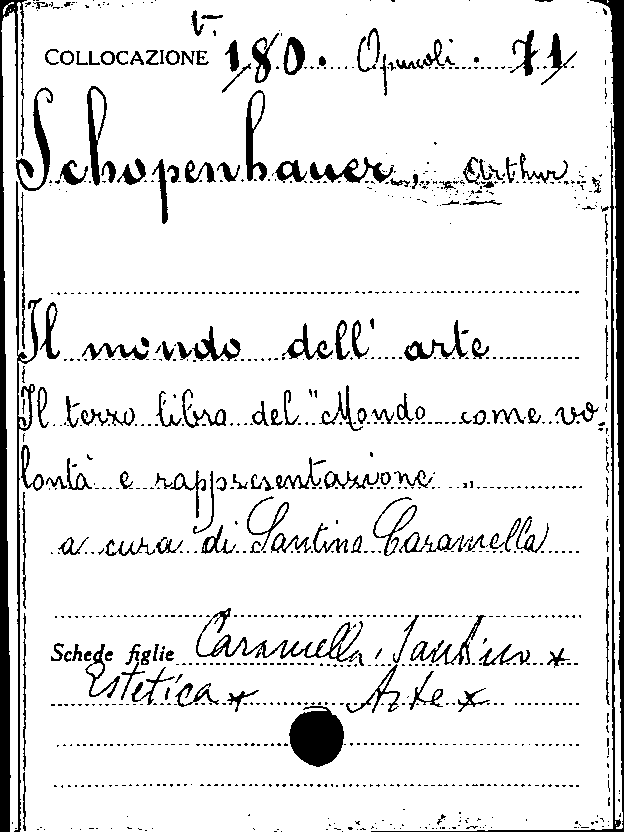 v.
COLLOCAZIONE 180. Opuscoli. 71
Schopenhauer, Arthur
Il mondo dell' arte
Il terzo libro del "Mondo come vo=
lontà e rappresentazione"
a cura di Santino Caramella
Schede figlie Caramella, Santino x
Estetica x Arte x